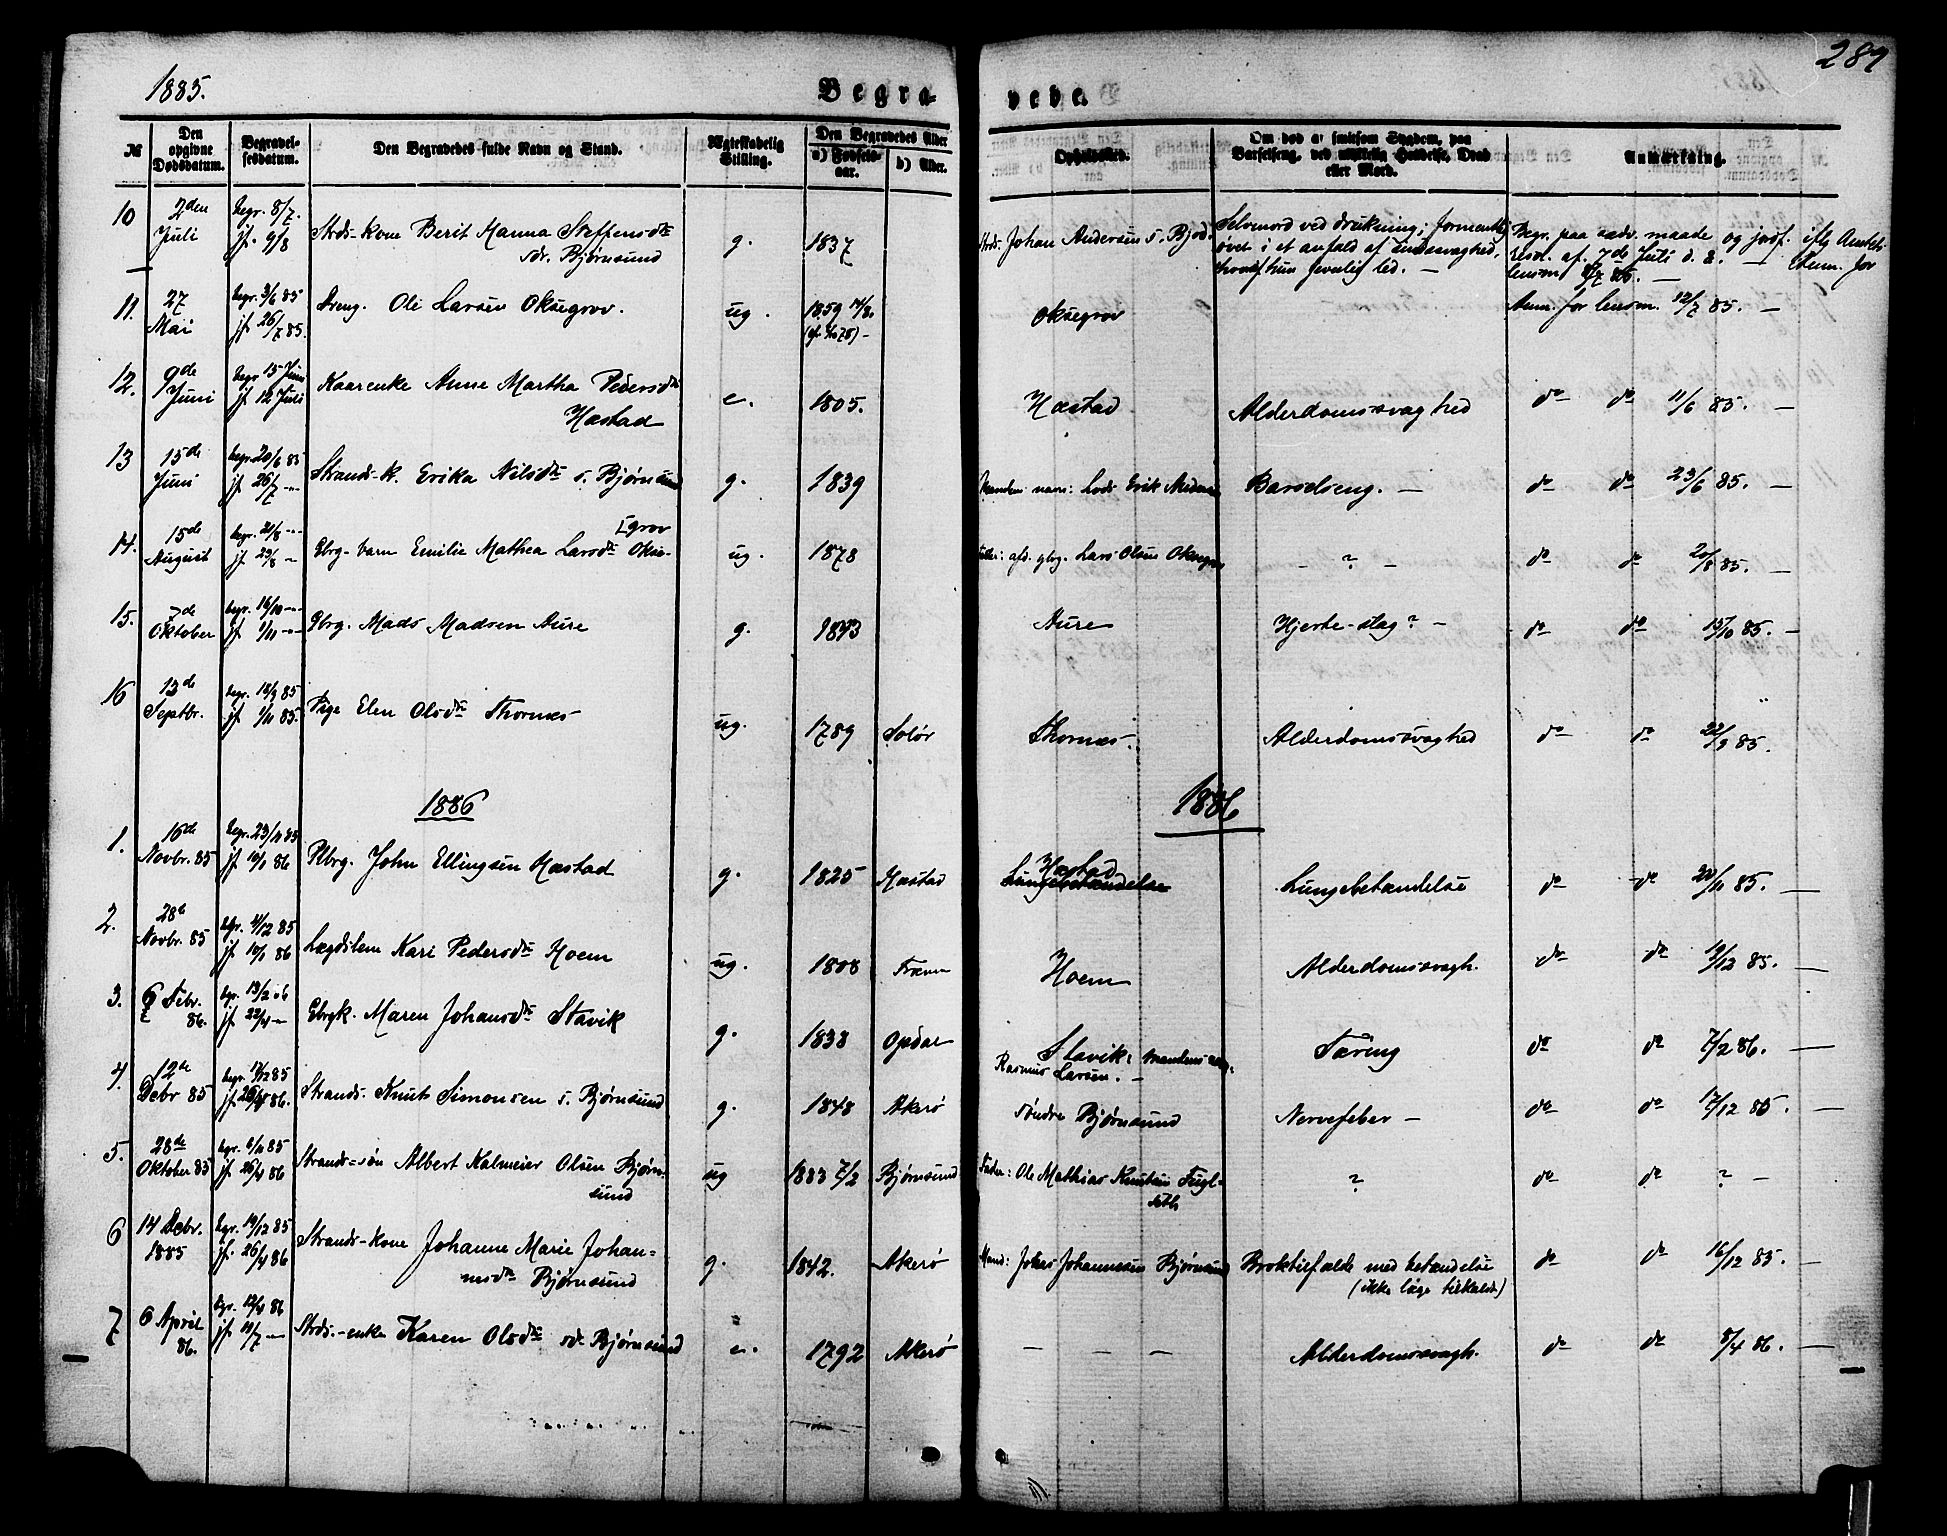 1885.
Begra-
vede.
287
№
Den opgivne Dødsdatum.
Begravelsesdatum.
Den Begravedes fulde Navn og Stand.
Ægteskabelig Stilling.
Den Begravedes Alder
a) Fødselsaar.
b) Alder.
Opholdssted.
Om død af smitsom Sygdom, paa Barselseng, ved ulykkelig Hændelse, Drab eller Mord.
Anmærkning.
10 2den Juli begr. 8/7. jf. 9/8 Strds-kone Berit Manna Steffensdtr sdr. Bjørnsund g. 1837 Strds. Johan Andersen s. Bjørs. Selvmord ved drukning; formentlig øvet i et anfald af sindssvaghed, hvoraf hun jevnlig led. — Begr. paa sædv. maade og jordf. iflg Amtets resol. af 7de Juli d. A. — Anm. for lensm. 8/7 85. —
11. 27 Mai begr. 3/6 85 jf. 26/7 85. Dreng. Ole Larsen Oksegrov. ug. 1859 Oksegrov Anm. for lensm. 12/7 85. —
12. 9de Juni begr. 15 Juni jf. 12 Juli Kaarenke Anne Martha Pedersdtr Hæstad e. 1805. Hæstad Alderdomssvaghed do do 11/6 85. —
13 15de Juni begr. 20/6 85 jf. 26/7 -"- Strands-k. Erika Nilsdtr s. Bjørnsund g. 1839 Mandens navn: Lods Erik Barselseng. — do do 23/6 85. —
14. 15de August begr. 21/8 -"- jf. 23/8 - Gbrg-barn Emilie Mathea Larsdtr Okse-[grov ug. 1878 Fader: afd. gbrg. Lars Olsen Oksegrov - ? - do do 20/8 85. —
15. 7de Oktober begr. 16/10 -"- jf. 1/11 -"- Gbrg. Mads Madsen Aure g. 1843 Aure Hjerte-slag? - do do 15/10 85. —
16 13de Septbr. begr. 18/9 85 jf. 1/11 85. Pige Elen Olsdtr Thornæs ug. 1789 Solør Thornæs. Alderdomssvaghed do do 22/9 85.
1886
1886
1. 16de Novbr. 85 begr. 23/11 85 jf. 10/1 86 Gbrg. John Ellingsen Hæstad g. 1825 Hæstad Hæstad Lungebetændelse Lungebetændelse do do 20/11 85. —
2. 28de Novbr. 85 begr. 4/12 85 jf. 10/1 86 Lægdslem Kari Pedersdtr Hoem ug. 1808 Fræna Hoem Alderdomssvagh. do do 19/12 85. —
3. 6 Febr. 86. begr. 13/2 86 jf. 22/4 - Gbrgk. Maren Johansdtr Stavik g. 1838 Opdal Stavik: mandens navn. Rasmus Larsen. - Tæring do do 7/2 86. —
4. 12te Debr 85 begr. 17/12 85 jf. 26/4 86. Strands. Knut Simonsen s. Bjørnsund g. 1848 Akerø søndre Bjørnsund Nervefeber — do do 17/12 85. —
5. 28de Oktober 85 begr. 6/11 85 jf. 26/4 86 Strands-søn Albert Kalmeier Olsen Bjørnsund ug 1883 7/2 Bjørnsund Fader: Ole Mathias Knutsen Fuglseth ? do do ? -
6 14 Debr. 1885 begr. 19/12 85 jf. 26/4 86 Strands-kone Johanne Marie Johannesdtr Bjørnsund g. 1842. Akerø Mand: Johannesen Bjørnsund Broktilfælde med betændelse (ikke læge tilkaldt) do do 16/12 85. —
7 6 April 86. begr. 12/4 86 jf. 11/7 - Strds.-enke Karen Olsdtr sdr. Bjørnsund e. 1792 Akerø — — — Alderdomssvagh. do do 8/4 86. —